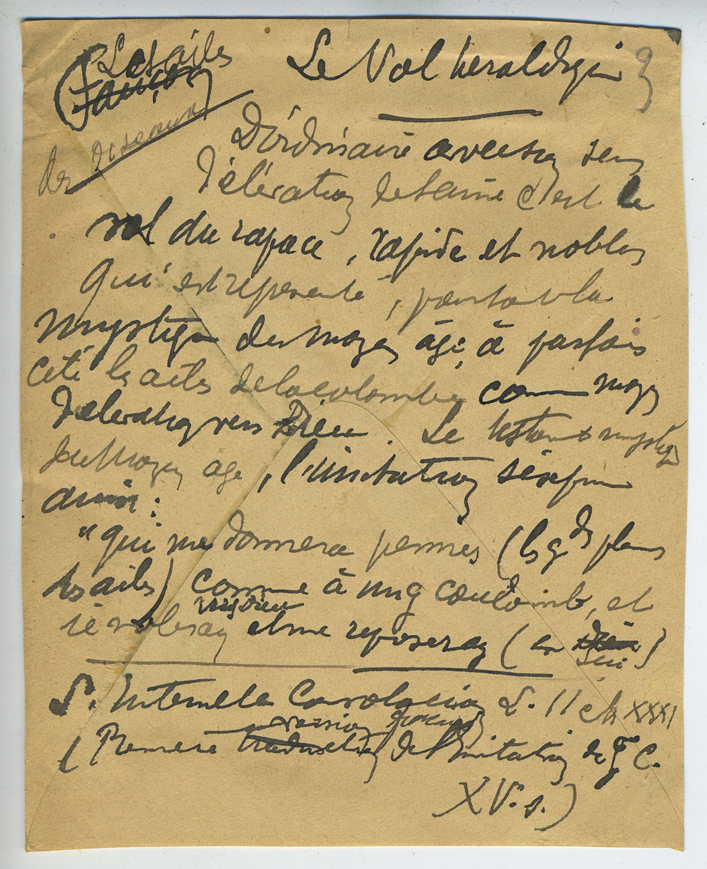 (Les ailes
Le Vol héraldique
des oiseaux)
D'ordinaire
l'élévation de l'âme c'est le
vol du rapace, rapide et noble
qui est représenté, pourtant la
mystique du moyen âge, a parfois
cité les ailes de la colombe comme moyen
d'élévation vers Dieu. Le mystique
du moyen age, l'imitation s'exprime
ainsi:
"qui me donnera pennes (les gdes plumes
des ailes) comme à ung coulomb, et
je voleray et me reposeray (en
L. II ch XXXI
(Première version de l'Imitation de J. C.
XV. s.)